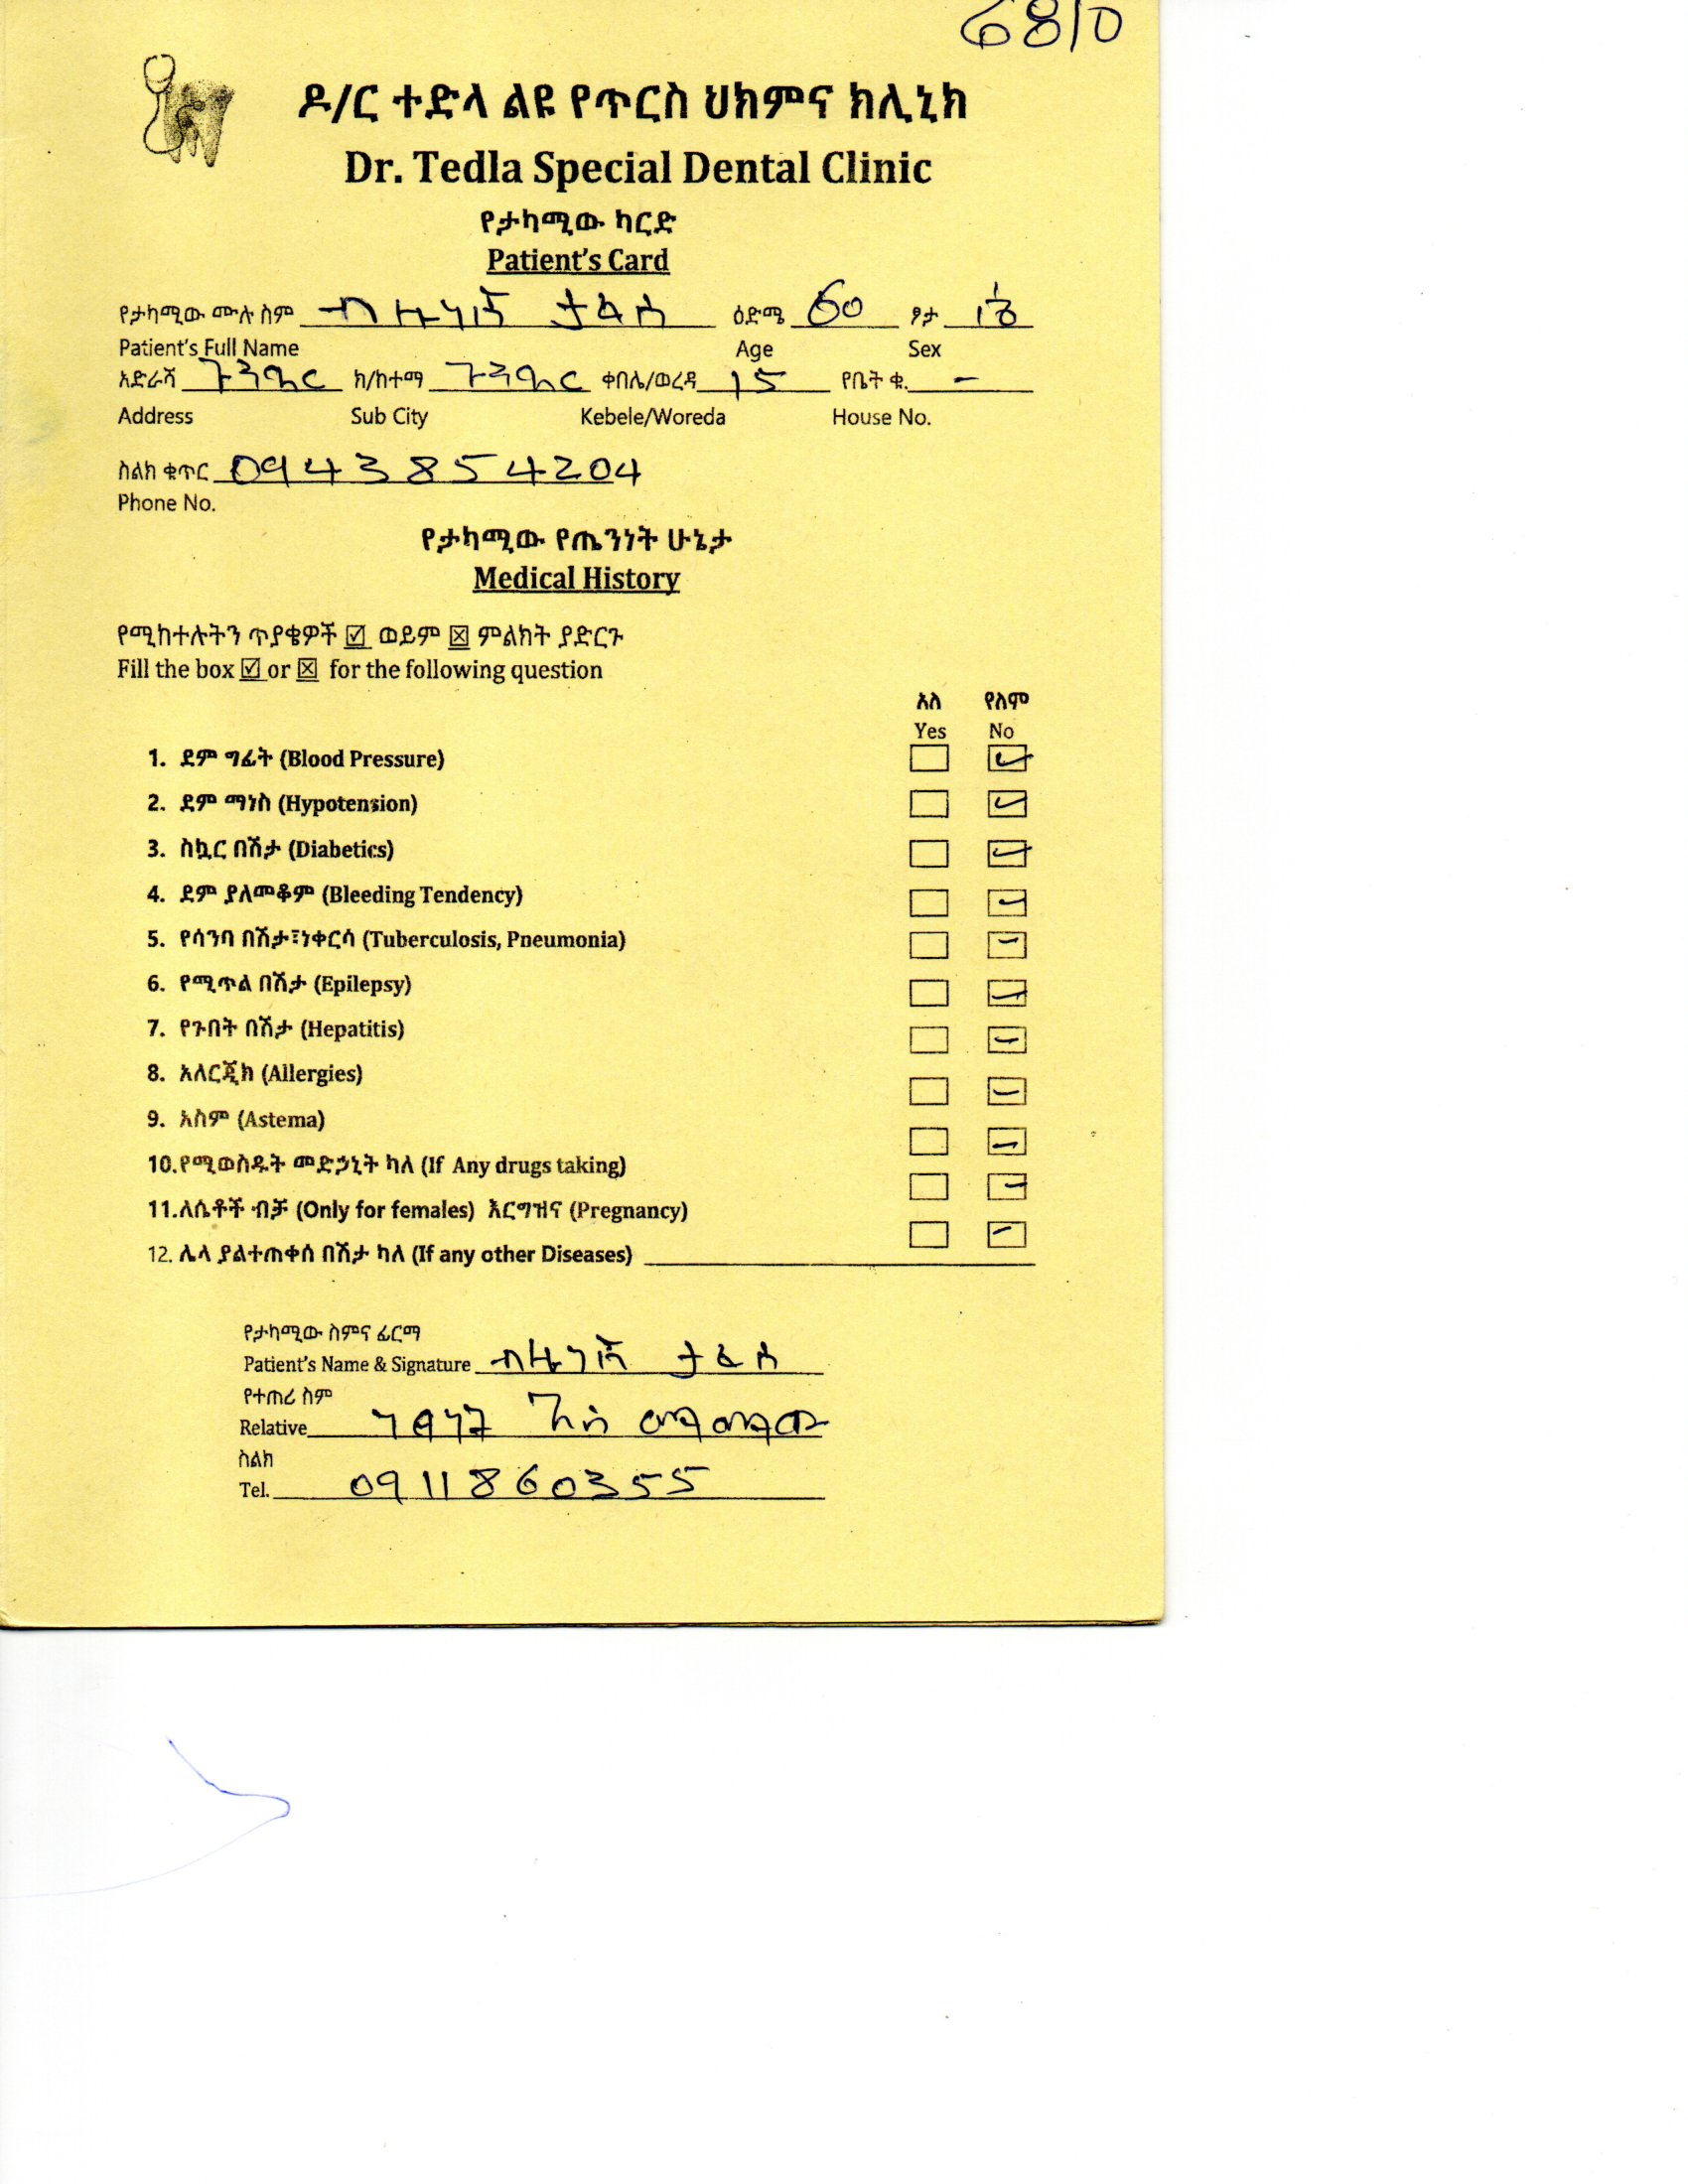 6810
ዶ/ር ተድላ ልዩ የጥርስ ህክምና ክሊኒክ
Dr. Tedla Special Dental Clinic
የታካሚው ካርድ
Patient's Card
የታካሚው ሙሉ ስም ብዙነሽ ታፈሰ ዕድሜ 60 ፆታ
Patient's Full Name Age Sex
አድራሻ ጎንዳር ክ/ከተማ ጎንዳር ቀበሌ/ወረዳ 15 የቤት ቁ. –
Address Sub City Kebele/Woreda House No.
ስልክ ቁጥር 09438854204
Phone No.
የታካሚው የጤንነት ሁኔታ
Medical History
የሚከተሉትን ጥያቄዎች ☑ ወይም ☒ ምልክት ያድርጉ
Fill the box ☑ or ☒ for the following question
አለ የለም
Yes No
1. ደም ግፊት (Blood Pressure)
2. ደም ማነስ (Hypotension)
3. ስኳር በሽታ (Diabetics)
4. ደም ያለመቆም (Bleeding Tendency)
5. የሳንባ በሽታ፣ነቀርሳ (Tuberculosis, Pneumonia)
6. የሚጥል በሽታ (Epilepsy)
7. የጉበት በሽታ (Hepatitis)
8. አለርጂክ (Allergies)
9. አስም (Astema)
10.የሚወስዱት መድኃኒት ካለ (If Any drugs taking)
11.ለሴቶች ብቻ (Only for females) እርግዝና (Pregnancy)
12. ሌላ ያልተጠቀሰ በሽታ ካለ (If any other Diseases)
የታካሚው ስምና ፊርማ
Patient's Name & Signature ብዙነሽ ታፈሰ
የተጠሪ ስም
Relative
ስልክ
Tel. 0911860355